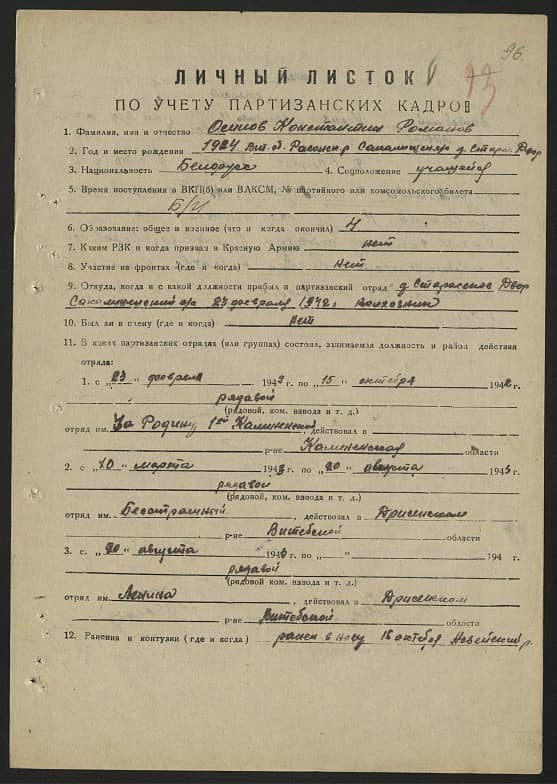 96.
ЛИЧНЫЙ ЛИСТОК
ПО УЧЕТУ ПАРТИЗАНСКИХ КАДРОВ
1. Фамилия, имя и отчество Осипов Константин Романов
2. Год и место рождения 1924 Вит. об. д. Двор
3. Национальность Белорус 4. Соцположение учащейся
5. Время поступления в ВКП(б) или ВЛКСМ, № партийного или комсомольского билета
Б/П
6. Образование: общее и военное (что и когда окончил) 4
7. Каким РЗК и когда призван в Красную Армию нет
8. Участие на фронтах (где и когда) нет
9. Откуда, когда и с какой должности прибыл в партизанский отряд д. Двор
23 февраля 1942 г. колхозник
10. Был ли в плену (где и когда) нет
11. В каких партизанских отрядах (или группах) состоял, занимаемая должность и район действия
отряда:
1. с „23“ февраля 1942 г. по „15“ октября 1942 г.
рядовой
(рядовой, ком. взвода и т. д.)
отряд им. За Родину 1ой Калининской, действовал в
р-не Калининская области
2. с „10“ марта 1943 г. по „20“ августа 1943 г.
рядовой
(рядовой, ком. взвода и т. д.)
отряд им. Бесстрашный, действовал в Дрисенском
р-не Витебской области
3. с „20“ августа 1943 г. по „ “ 194 г.
рядовой
(рядовой, ком. взвода и т. д.)
отряд им. Ленина, действовал в Дрисенком
р-не Витебской области
12. Ранения и контузии (где и когда) ранен в ногу 16 октября р.